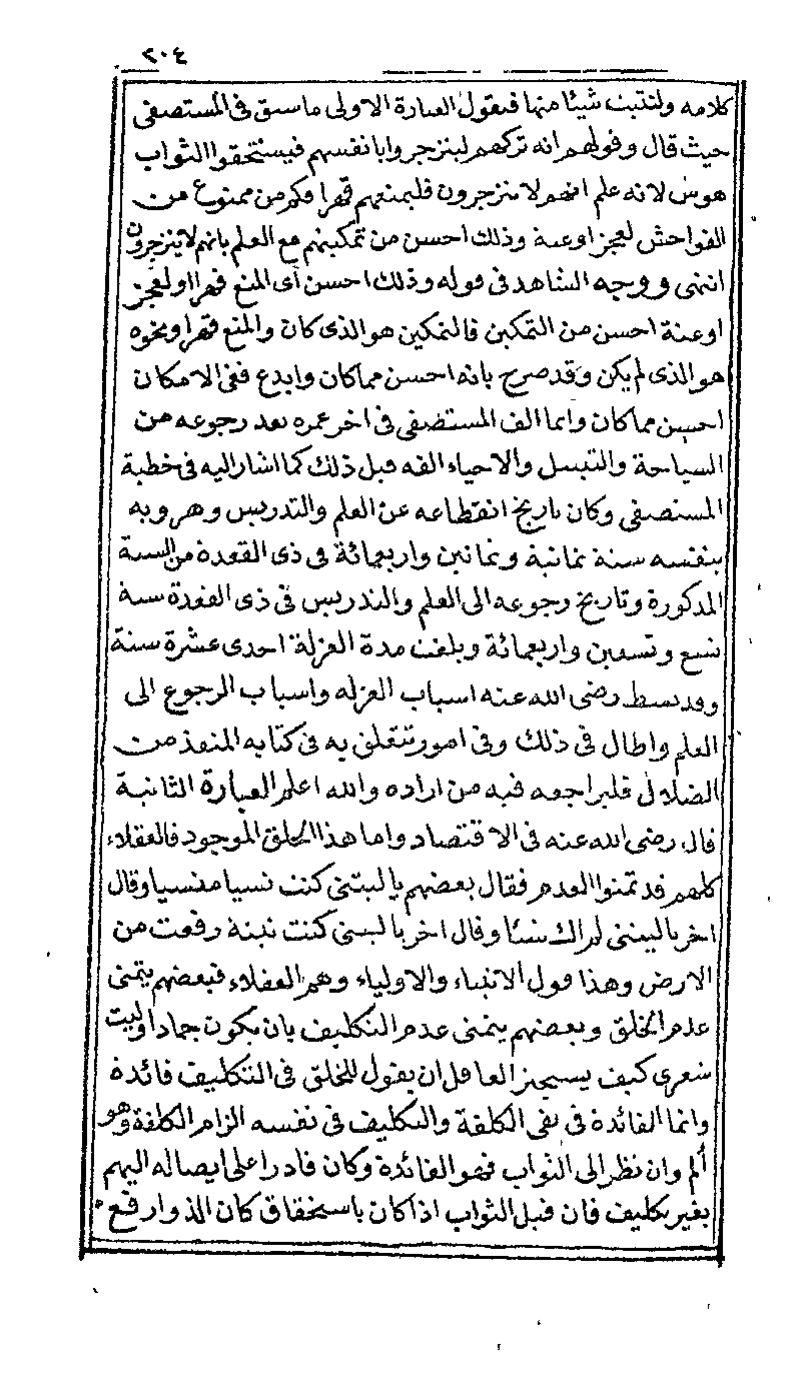 ٢٠٤
كلامه ولنثبت شيئا منها فنقول العبارة الاولى ما سبق فى المستصفى
حيث قال وقولهم انه تركهم لينزجروا بانفسهم فيستحقوا الثواب
هوس لانه علم انهم لا ينزجرون فليمنعهم قهرا فكم من ممنوع من
الفواحش لعجز او عنة وذلك احسن من تمكينهم مع العلم بانهم لا ينزجرون
انتهى ووجه الشاهد فى قوله وذلك احسن أى المنع قهرا او لعجز
او عنة احسن من التمكين فالتمكين هو الذى كان والمنع قهرا ونحوه
هو الذى لم يكن وقد صرح بانه احسن مما كان وابدع ففى الامكان
احسن مما كان وانما الف المستصفى فى اخر عمره بعد رجوعه من
السياحة والتبسل والاحياء الفه قبل ذلك كما اشار اليه فى خطبة
المستصفى وكان تاريخ انقطاعه عن العلم والتدريس وهروبه
بنفسه سنة ثمانية وثمانين واربعمائة فى ذى القعدة من السنة
المذكورة وتاريخ رجوعه الى العلم والتدريس فى ذى القعدة سنة
تسع وتسعين واربعمائة وبلغت مدة العزلة احدى عشرة سنة
وقد بسط رضى الله عنه اسباب العزله واسباب الرجوع الى
العلم واطال فى ذلك وفى امور تتعلق به فى كتابه المنقذ من
الضلال فليراجعه فيه من اراده والله اعلم العبارة الثانية
قال رضى الله عنه فى الاقتصاد واما هذا الخلق الموجود فالعقلاء
كلهم قد تمنوا العدم فقال بعضهم يا ليتنى كنت نسيا منسيا وقال
اخر يا ليتنى لم اك شئا وقال اخر يا ليتنى كنت تبنة رفعت من
الارض وهذا قول الانبياء والاولياء وهم العقلاء فبعضهم يتمنى
عدم الخلق وبعضهم يتمنى عدم التكليف بان يكون جمادا وليت
شعرى كيف يستجيز العاقل ان يقول للخلق فى التكليف فائدة
وانما الفائدة فى نفى الكلفة والتكليف فى نفسه الزام الكلفة وهو
ألم وان نظر الى الثواب فهو الفائدة وكان قادرا على ايصاله اليهم
بغير تكليف فان قيل الثواب اذا كان باستحقاق كان الذ وارفع